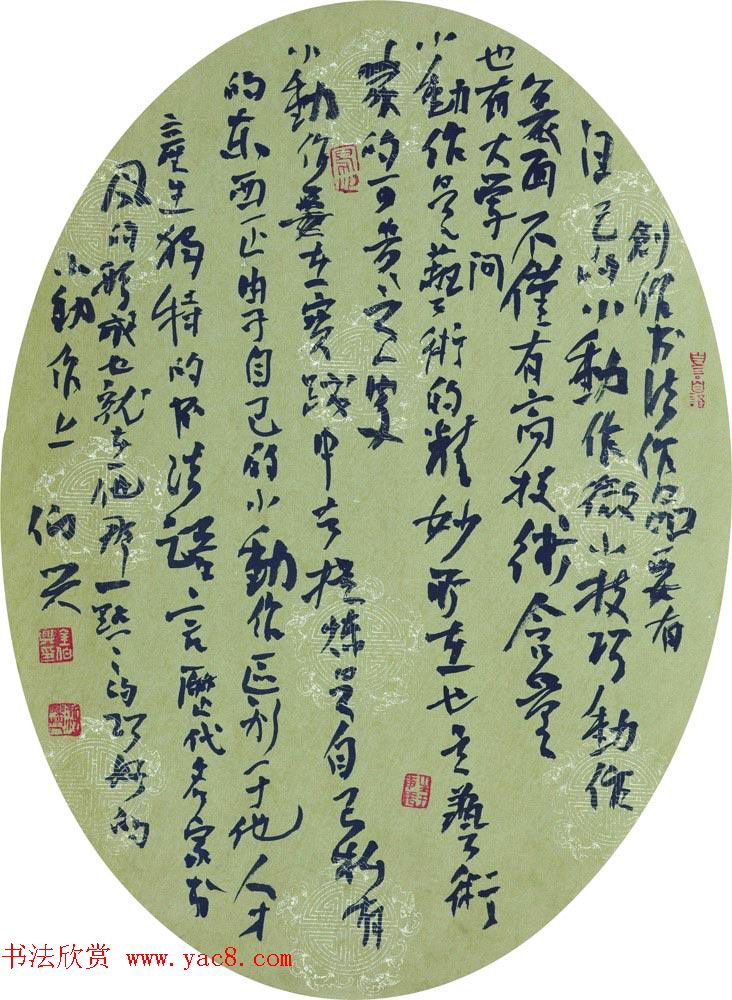 創作书法作品要有
自己的小動作微小技巧動作
在裏面不僅有高技術含量
也有大学问
小動作是藝術的精妙所在也是藝術
的可贵之處
小動作要在實踐中去提煉是自己有
的东西正由于自己的小動作区别于他人才
產生独特的书法語言歷代名家书
风的形成也就在他那一點々的巧妙的
小動作上 伯兴
书法欣赏 www.yac8.com